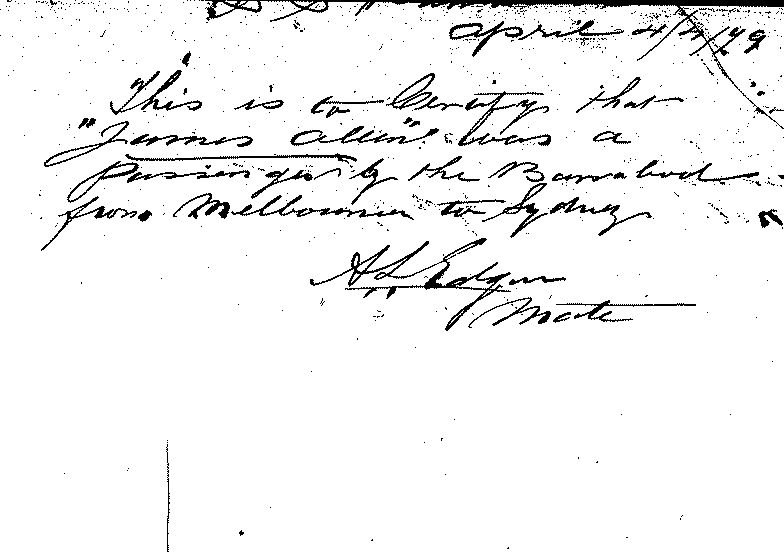 April 4/4/79
This is to Certify that
"James Allen" was a
Passenger by the Barrabool
from Melbourne to Sydney
A L Edgar
Mate